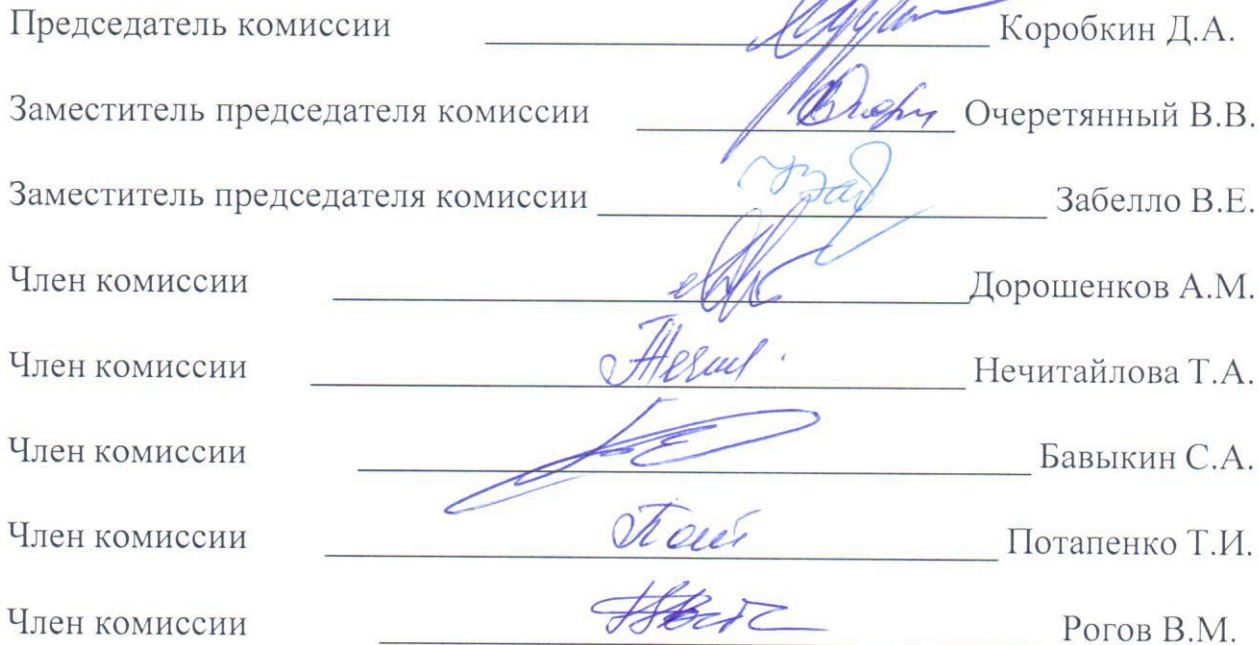 Председатель комиссии Коробкин Д.А.
Заместитель председателя комиссии Очеретянный В.В.
Заместитель председателя комиссии Забелло В.Е.
Член комиссии Дорошенков А.М.
Член комиссии Нечитайлова Т.А.
Член комиссии Бавыкин С.А.
Член комиссии Потапенко Т.И.
Член комиссии Рогов В.М.